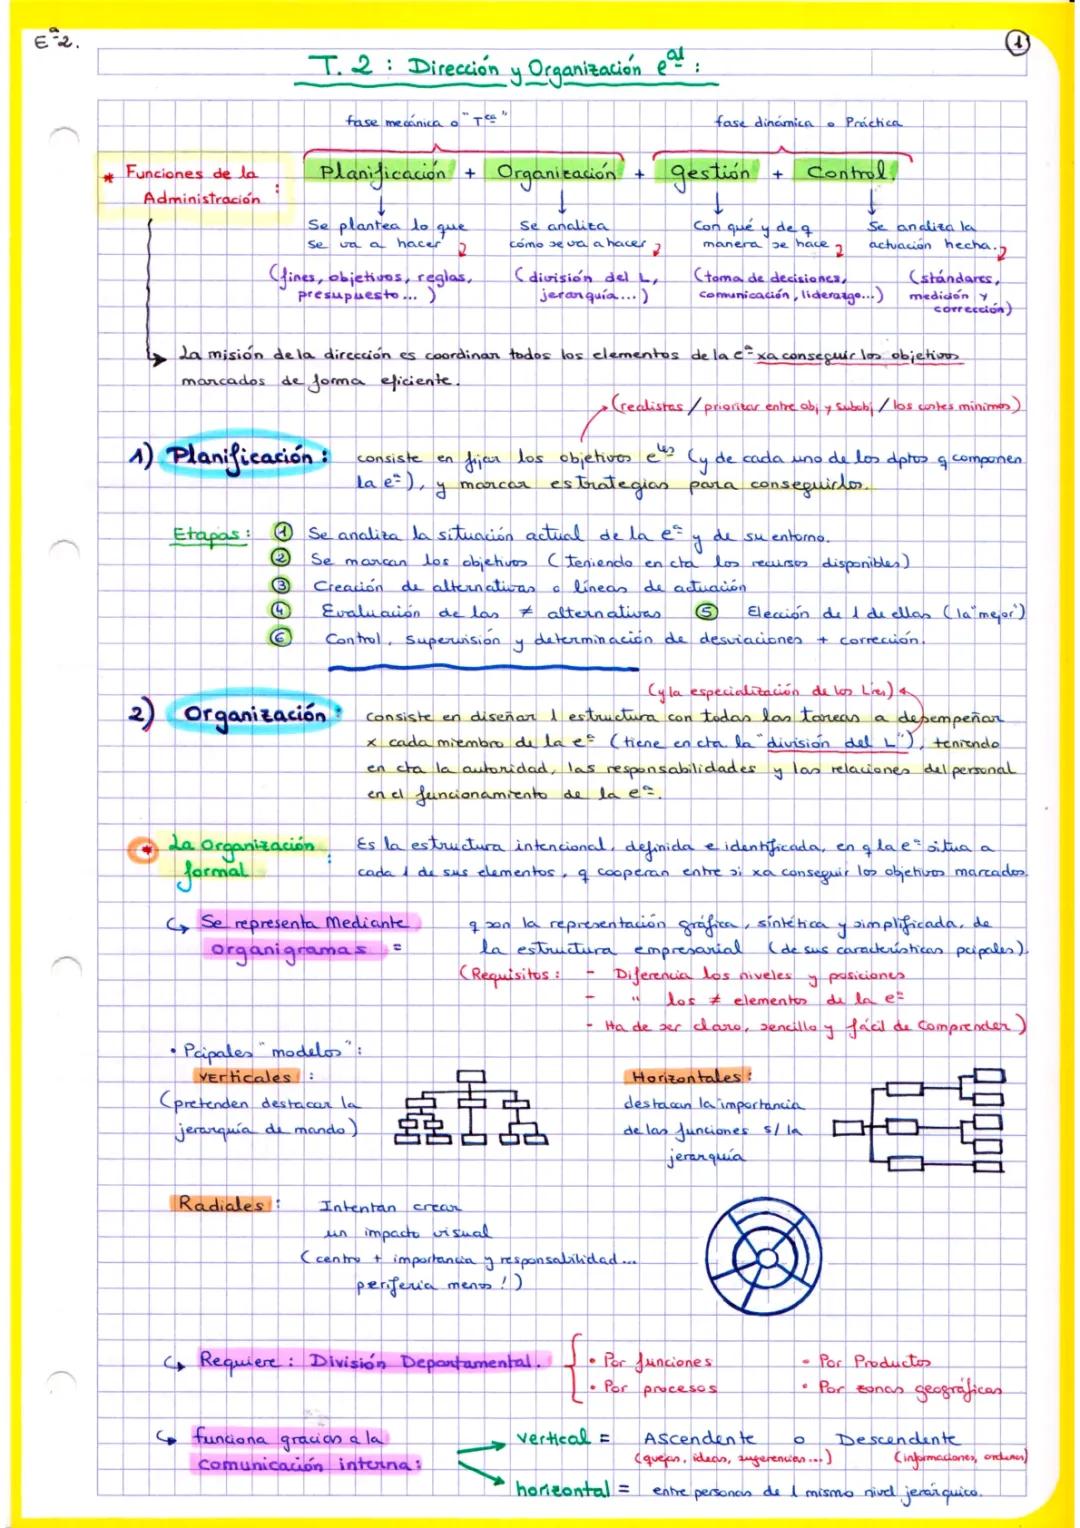 Eª2.
1
T. 2 : Dirección y Organización eᵃˡ :
fase mecánica o "Tᶜᵃ"
fase dinámica o Práctica
* Funciones de la Administración :
Planificación + Organización + Gestión + Control.
Se plantea lo que se va a hacer
Se analiza cómo se va a hacer
Con qué y de q manera se hace
Se analiza la actuación hecha.
(fines, objetivos, reglas, presupuesto... )
(división del L, jerarquía...)
(toma de decisiones, comunicación, liderazgo...)
(stándares, medición y corrección)
La misión de la dirección es coordinar todos los elementos de la eª xa conseguir los objetivos
marcados de forma eficiente.
(realistas / priorizar entre obj y subobj / los costes mínimos)
1) Planificación : consiste en fijar los objetivos eˡᵉˢ (y de cada uno de los dptos q componen
la eª), y marcar estrategias para conseguirlos.
Etapas : 1 Se analiza la situación actual de la eª y de su entorno.
2 Se marcan los objetivos (teniendo en cta los recursos disponibles)
3 Creación de alternativas o líneas de actuación
4 Evaluación de las ≠ alternativas 5 Elección de 1 de ellas (la "mejor")
6 Control, supervisión y determinación de desviaciones + corrección.
(y la especialización de los L)
2) Organización : consiste en diseñar 1 estructura con todas las tareas a desempeñar
x cada miembro de la eª (tiene en cta la "división del L"), teniendo
en cta la autoridad, las responsabilidades y las relaciones del personal
en el funcionamiento de la eª.
* La Organización formal : Es la estructura intencional, definida e identificada, en q la eª situa a
cada 1 de sus elementos, q cooperan entre si xa conseguir los objetivos marcados.
Se representa Mediante organigramas = q son la representación gráfica, sintética y simplificada, de
la estructura empresarial (de sus características pcipales).
(Requisitos : - Diferencia los niveles y posiciones
- " los ≠ elementos de la eª
- Ha de ser claro, sencillo y fácil de Comprender)
• Pcipales "modelos" :
Verticales :
(pretenden destacar la
jerarquía de mando)
Horizontales :
destacan la importancia
de las funciones s/ la
jerarquía
Radiales : Intentan crear
un impacto visual
(centro + importancia y responsabilidad...
periferia menos !)
Requiere : División Departamental.
• Por funciones • Por Productos
• Por procesos • Por zonas geográficas
funciona gracias a la
comunicación interna :
vertical = Ascendente o Descendente
(quejas, ideas, sugerencias...) (informaciones, ordenes)
horizontal = entre personas de 1 mismo nivel jerárquico.